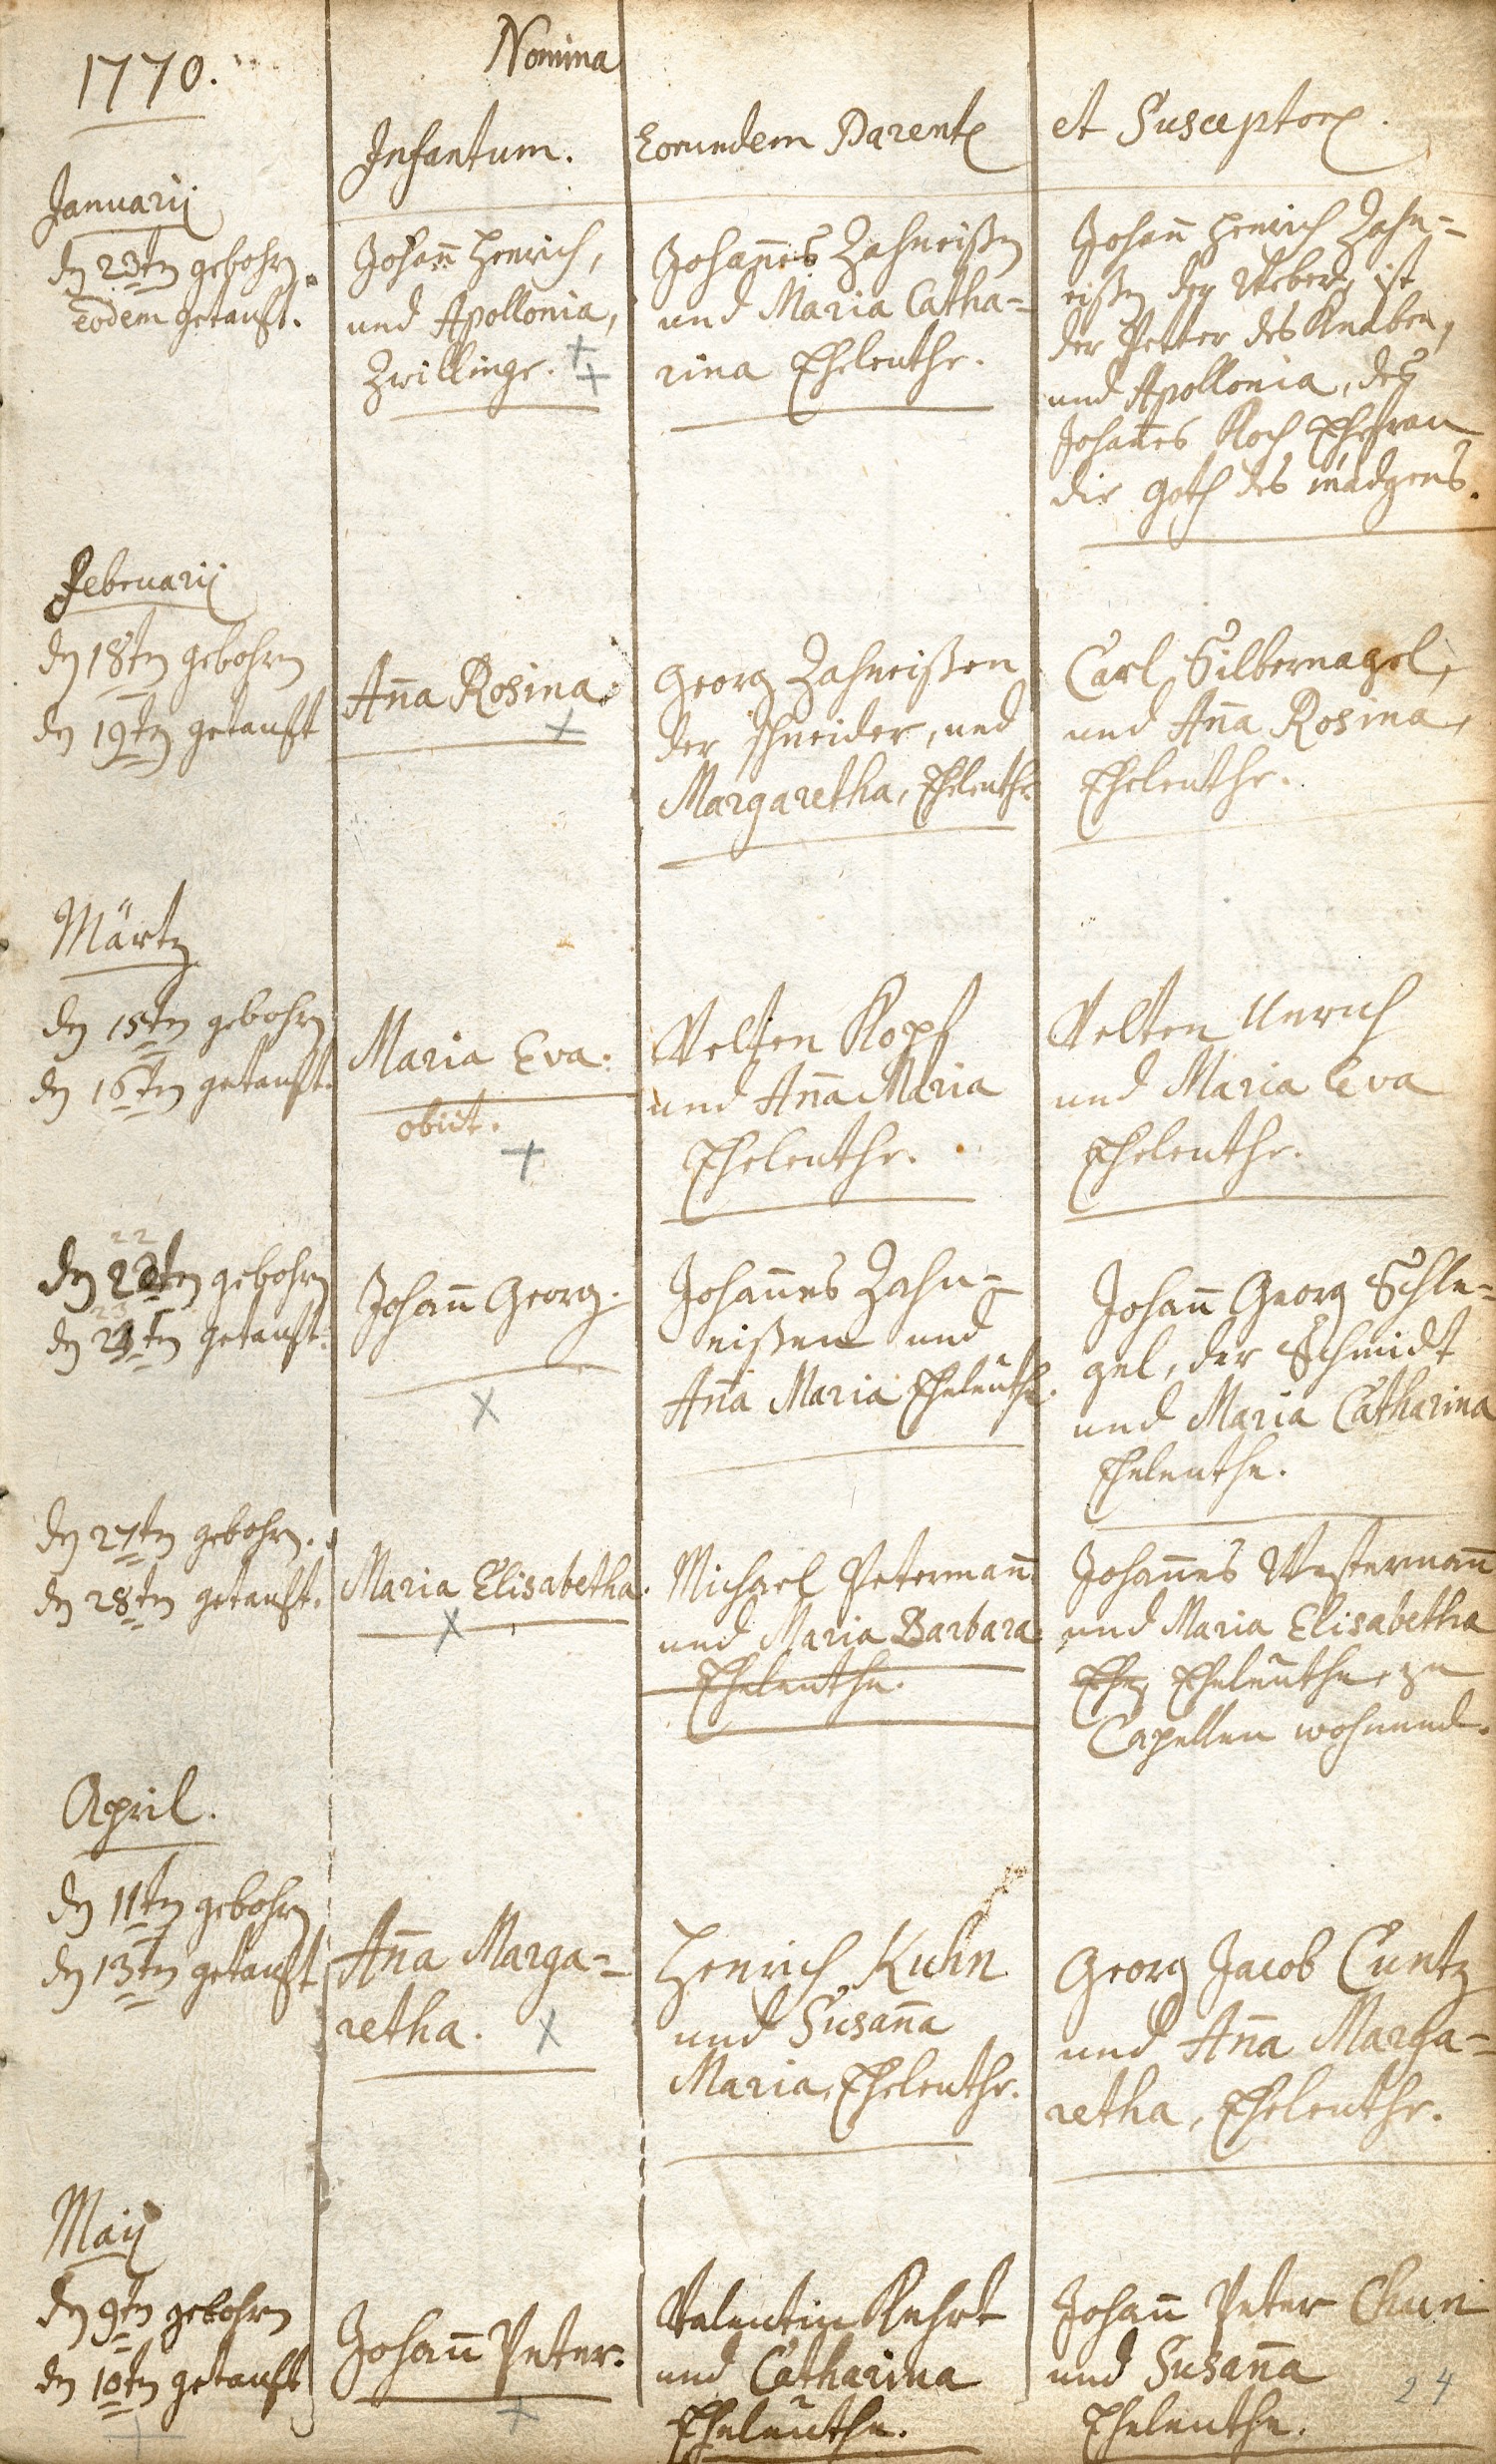 1770.
Nomina
Infantum.
Eorundem Parent
et Susceptor.
Januarii
den 23ten gebohrn.
Eodem getauft.
Johann Henrich,
und Apollonia,
Zwillinge.
Johannes Zahneißen
und Maria Catha=
rina Eheleuthe.
Johann Henrich Zahn=
eißen der Weber, ist
der Petter des Knaben,
und Apollonia, des
Johannes Koch Ehefrau
die Goth des mädgens.
Februarii
den 18ten gebohren
den 19ten getauft
Anna Rosina.
Georg Zahneißen
der schneider, und
Margaretha, Eheleuthe.
Carl Silbernagel,
und Anna Rosina,
Eheleuthe.
Märtz
den 15ten gebohren
den 16ten getauft.
Maria Eva.
obiit.
Velten Kopf
und Anna Maria
Eheleuthe.
Velten Unrich
und Maria Eva
Eheleuthe.
22
den 22ten gebohren
23
den 23ten getauft.
Johann Georg.
Johannes Zahn=
eißen und
Anna Maria Eheleuthe.
Johann Georg Schle=
gel, der Schmidt
und Maria Catharina
Eheleuthe.
den 27ten gebohrn.
den 28ten getauft.
Maria Elisabetha.
Michael Petermann
und Maria Barbara
Eheleuthe.
Johannes Westermann
und Maria Elisabetha
Eheleuthe, zu
Capellen wohnend.
April.
den 11ten gebohren
den 13ten getauft
Anna Marga=
retha.
Henrich Kuhn
und Susanna
Maria, Eheleuthe.
Georg Jacob Cuntz
und Anna Marga=
retha, Eheleuthe.
Maij
den 9ten gebohren
den 10ten getauft
Johann Peter.
Valentin Kuhrt
und Catharina
Eheleuthe.
Johann Peter Chun
und Susanna
Eheleuthe.
24